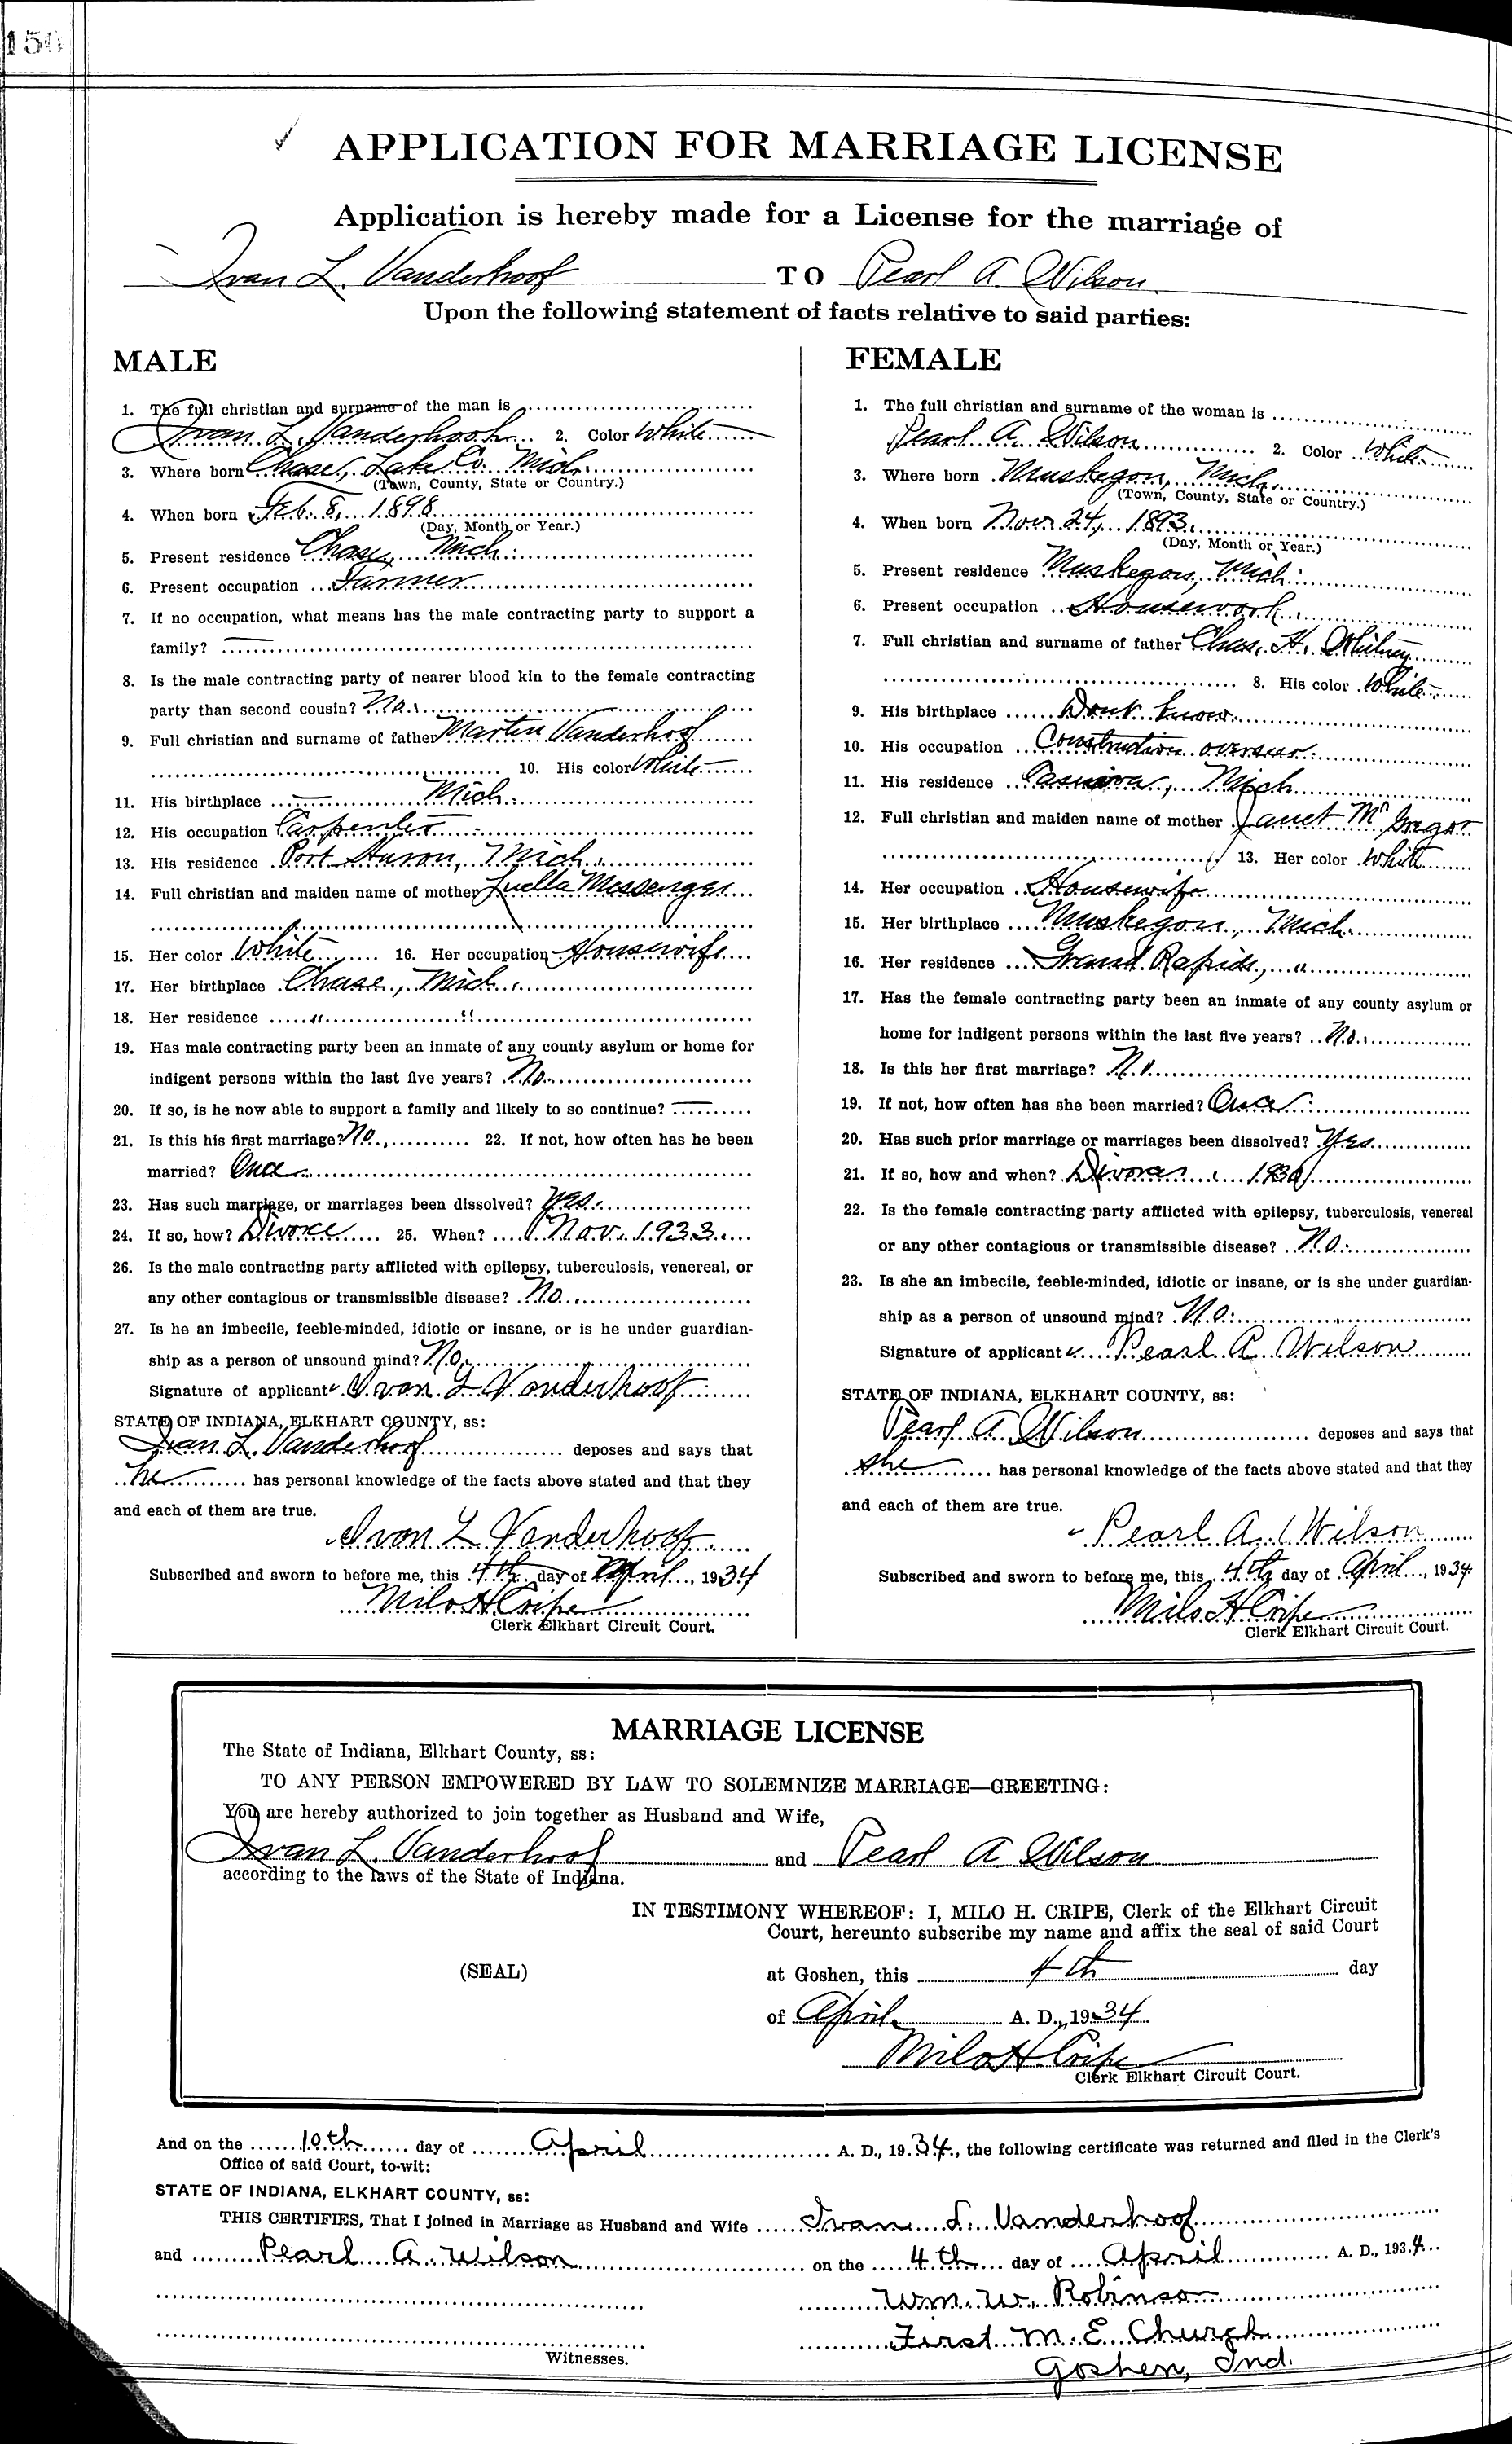 150
APPLICATION FOR MARRIAGE LICENSE
Application is hereby made for a License for the marriage of
Ivan L. Vanderhoof TO Pearl A. Wilson
Upon the following statement of facts relative to said parties:
MALE
1. The full christian and surname of the man is
Ivan L. Vanderhoof 2. Color White
3. Where born Chase, Lake Co. Mich.
(Town, County, State or Country.)
4. When born Feb. 8, 1898
(Day, Month or Year.)
5. Present residence Chase, Mich.
6. Present occupation Farmer
7. If no occupation, what means has the male contracting party to support a
family? —
8. Is the male contracting party of nearer blood kin to the female contracting
party than second cousin? No.
9. Full christian and surname of father Martin Vanderhoof
10. His color White
11. His birthplace — Mich.
12. His occupation Carpenter
13. His residence Port Huron, Mich.
14. Full christian and maiden name of mother Luella Messenger
15. Her color White 16. Her occupation Housewife
17. Her birthplace Chase, Mich.
18. Her residence " "
19. Has male contracting party been an inmate of any county asylum or home for
indigent persons within the last five years? No.
20. If so, is he now able to support a family and likely to so continue? —
21. Is this his first marriage? No. 22. If not, how often has he been
married? Once
23. Has such marriage, or marriages been dissolved? Yes.
24. If so, how? Divorce 25. When? Nov. 1933
26. Is the male contracting party afflicted with epilepsy, tuberculosis, venereal, or
any other contagious or transmissible disease? No.
27. Is he an imbecile, feeble-minded, idiotic or insane, or is he under guardian-
ship as a person of unsound mind? No.
Signature of applicant Ivan L Vanderhoof
STATE OF INDIANA, ELKHART COUNTY, ss:
Ivan L. Vanderhoof deposes and says that
he has personal knowledge of the facts above stated and that they
and each of them are true.
Ivan L Vanderhoof
Subscribed and sworn to before me, this 4th day of April, 1934
Milo H Cripe
Clerk Elkhart Circuit Court.
FEMALE
1. The full christian and surname of the woman is
Pearl A. Wilson 2. Color White
3. Where born Muskegon, Mich.
(Town, County, State or Country.)
4. When born Nov 24, 1893
(Day, Month or Year.)
5. Present residence Muskegon, Mich.
6. Present occupation Housework
7. Full christian and surname of father Chas. H. Whitney
8. His color White
9. His birthplace Dont know
10. His occupation Construction overseer
11. His residence Mich
12. Full christian and maiden name of mother Janet McGregor
13. Her color White
14. Her occupation Housewife
15. Her birthplace Muskegon, Mich.
16. Her residence Grand Rapids, "
17. Has the female contracting party been an inmate of any county asylum or
home for indigent persons within the last five years? No.
18. Is this her first marriage? No
19. If not, how often has she been married? Once
20. Has such prior marriage or marriages been dissolved? Yes
21. If so, how and when? Divorce 1930
22. Is the female contracting party afflicted with epilepsy, tuberculosis, venereal
or any other contagious or transmissible disease? No.
23. Is she an imbecile, feeble-minded, idiotic or insane, or is she under guardian-
ship as a person of unsound mind? No.
Signature of applicant Pearl A Wilson
STATE OF INDIANA, ELKHART COUNTY, ss:
Pearl A Wilson deposes and says that
she has personal knowledge of the facts above stated and that they
and each of them are true.
Pearl A. Wilson
Subscribed and sworn to before me, this 4th day of April, 1934
Milo H Cripe
Clerk Elkhart Circuit Court.
MARRIAGE LICENSE
The State of Indiana, Elkhart County, ss:
TO ANY PERSON EMPOWERED BY LAW TO SOLEMNIZE MARRIAGE—GREETING:
You are hereby authorized to join together as Husband and Wife,
Ivan L. Vanderhoof and Pearl A Wilson
according to the laws of the State of Indiana.
IN TESTIMONY WHEREOF: I, MILO H. CRIPE, Clerk of the Elkhart Circuit
Court, hereunto subscribe my name and affix the seal of said Court
(SEAL) at Goshen, this 4th day
of April A. D., 1934
Milo H Cripe
Clerk Elkhart Circuit Court.
And on the 10th day of April A. D., 1934, the following certificate was returned and filed in the Clerk's
Office of said Court, to-wit:
STATE OF INDIANA, ELKHART COUNTY, ss:
THIS CERTIFIES, That I joined in Marriage as Husband and Wife Ivan L. Vanderhoof
and Pearl A. Wilson on the 4th day of April A. D., 1934
Wm. W. Robinson
First M. E. Church
Witnesses.
Goshen, Ind.